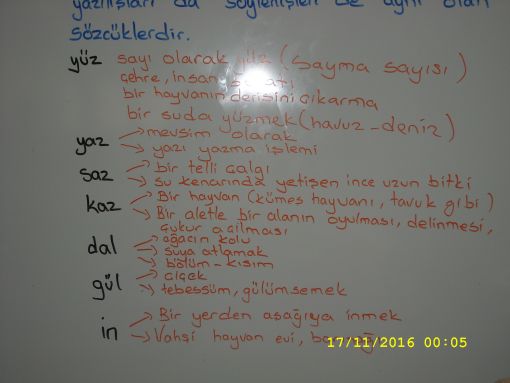 yazılışları da söylenişleri de aynı olan
sözcüklerdir.
yüz sayı olarak yüz (sayma sayısı)
çehre, insan
bir hayvanın derisini çıkarma
bir suda yüzmek (havuz-deniz)
yaz → mevsim olarak
→ yazı yazma işlemi
saz → bir telli çalgı
→ su kenarında yetişen ince uzun bitki
kaz → Bir hayvan (kümes hayvanı, tavuk gibi)
→ Bir aletle bir alanın oyulması, delinmesi,
çukur açılması
dal → ağacın kolu
→ suya atlamak
→ bölüm-kısım
gül → çiçek
→ tebessüm, gülümsemek
in → Bir yerden aşağıya inmek
→ Vahşi hayvan evi,
17/11/2016 00:05